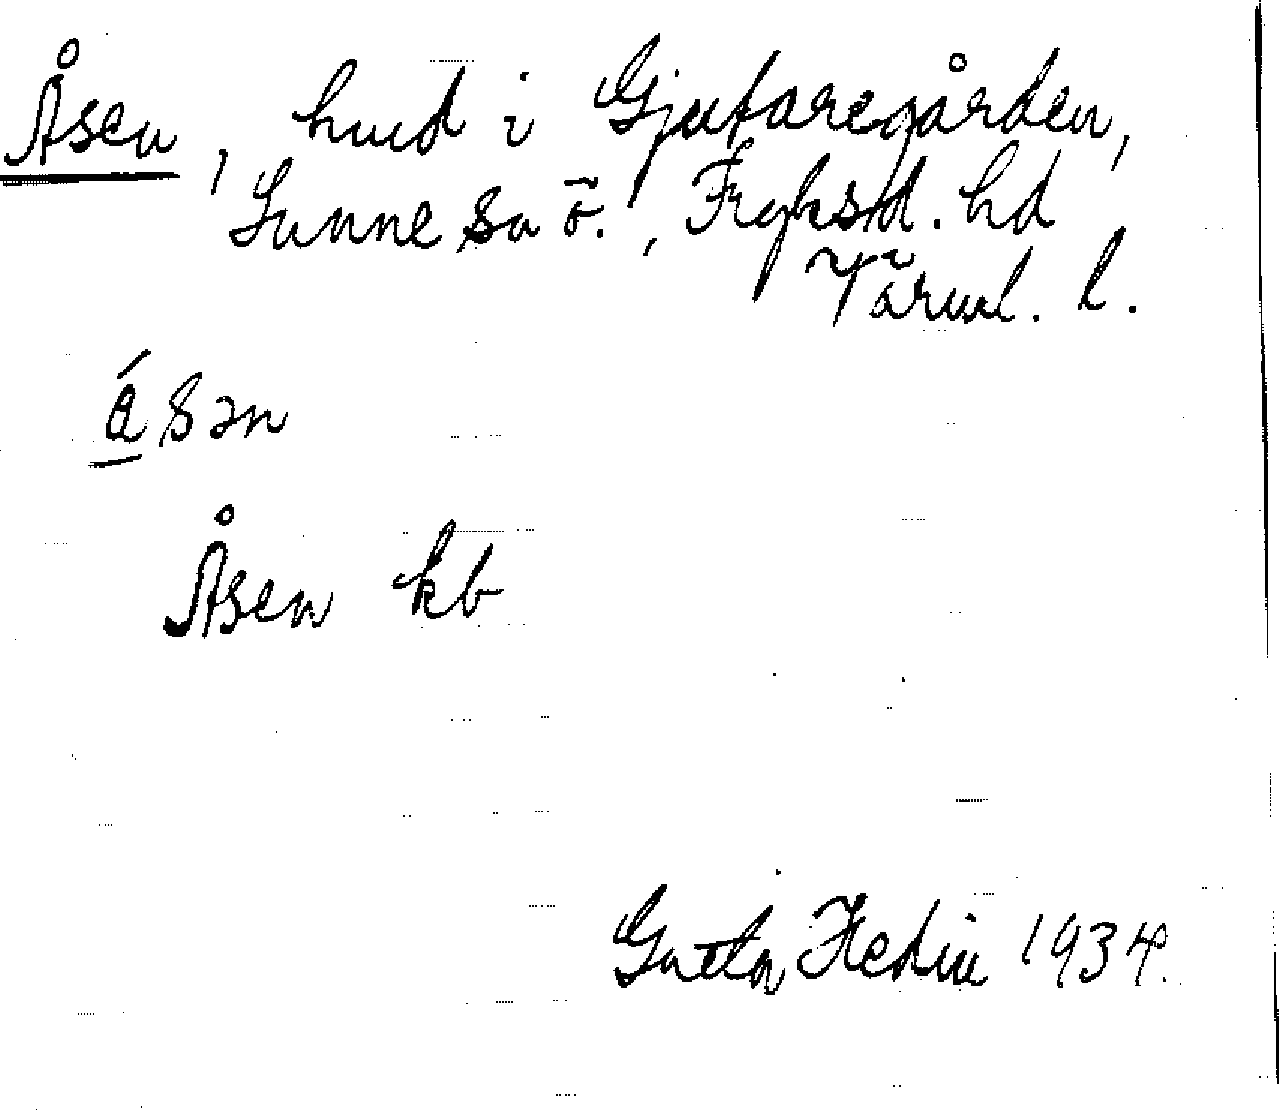 Åsen, hmd i Gjutaregården,
Sunne sn ö., Fryksd. hd
Värml. l.
ǻsən
Åsen kb
Gösta Hedin 1934.